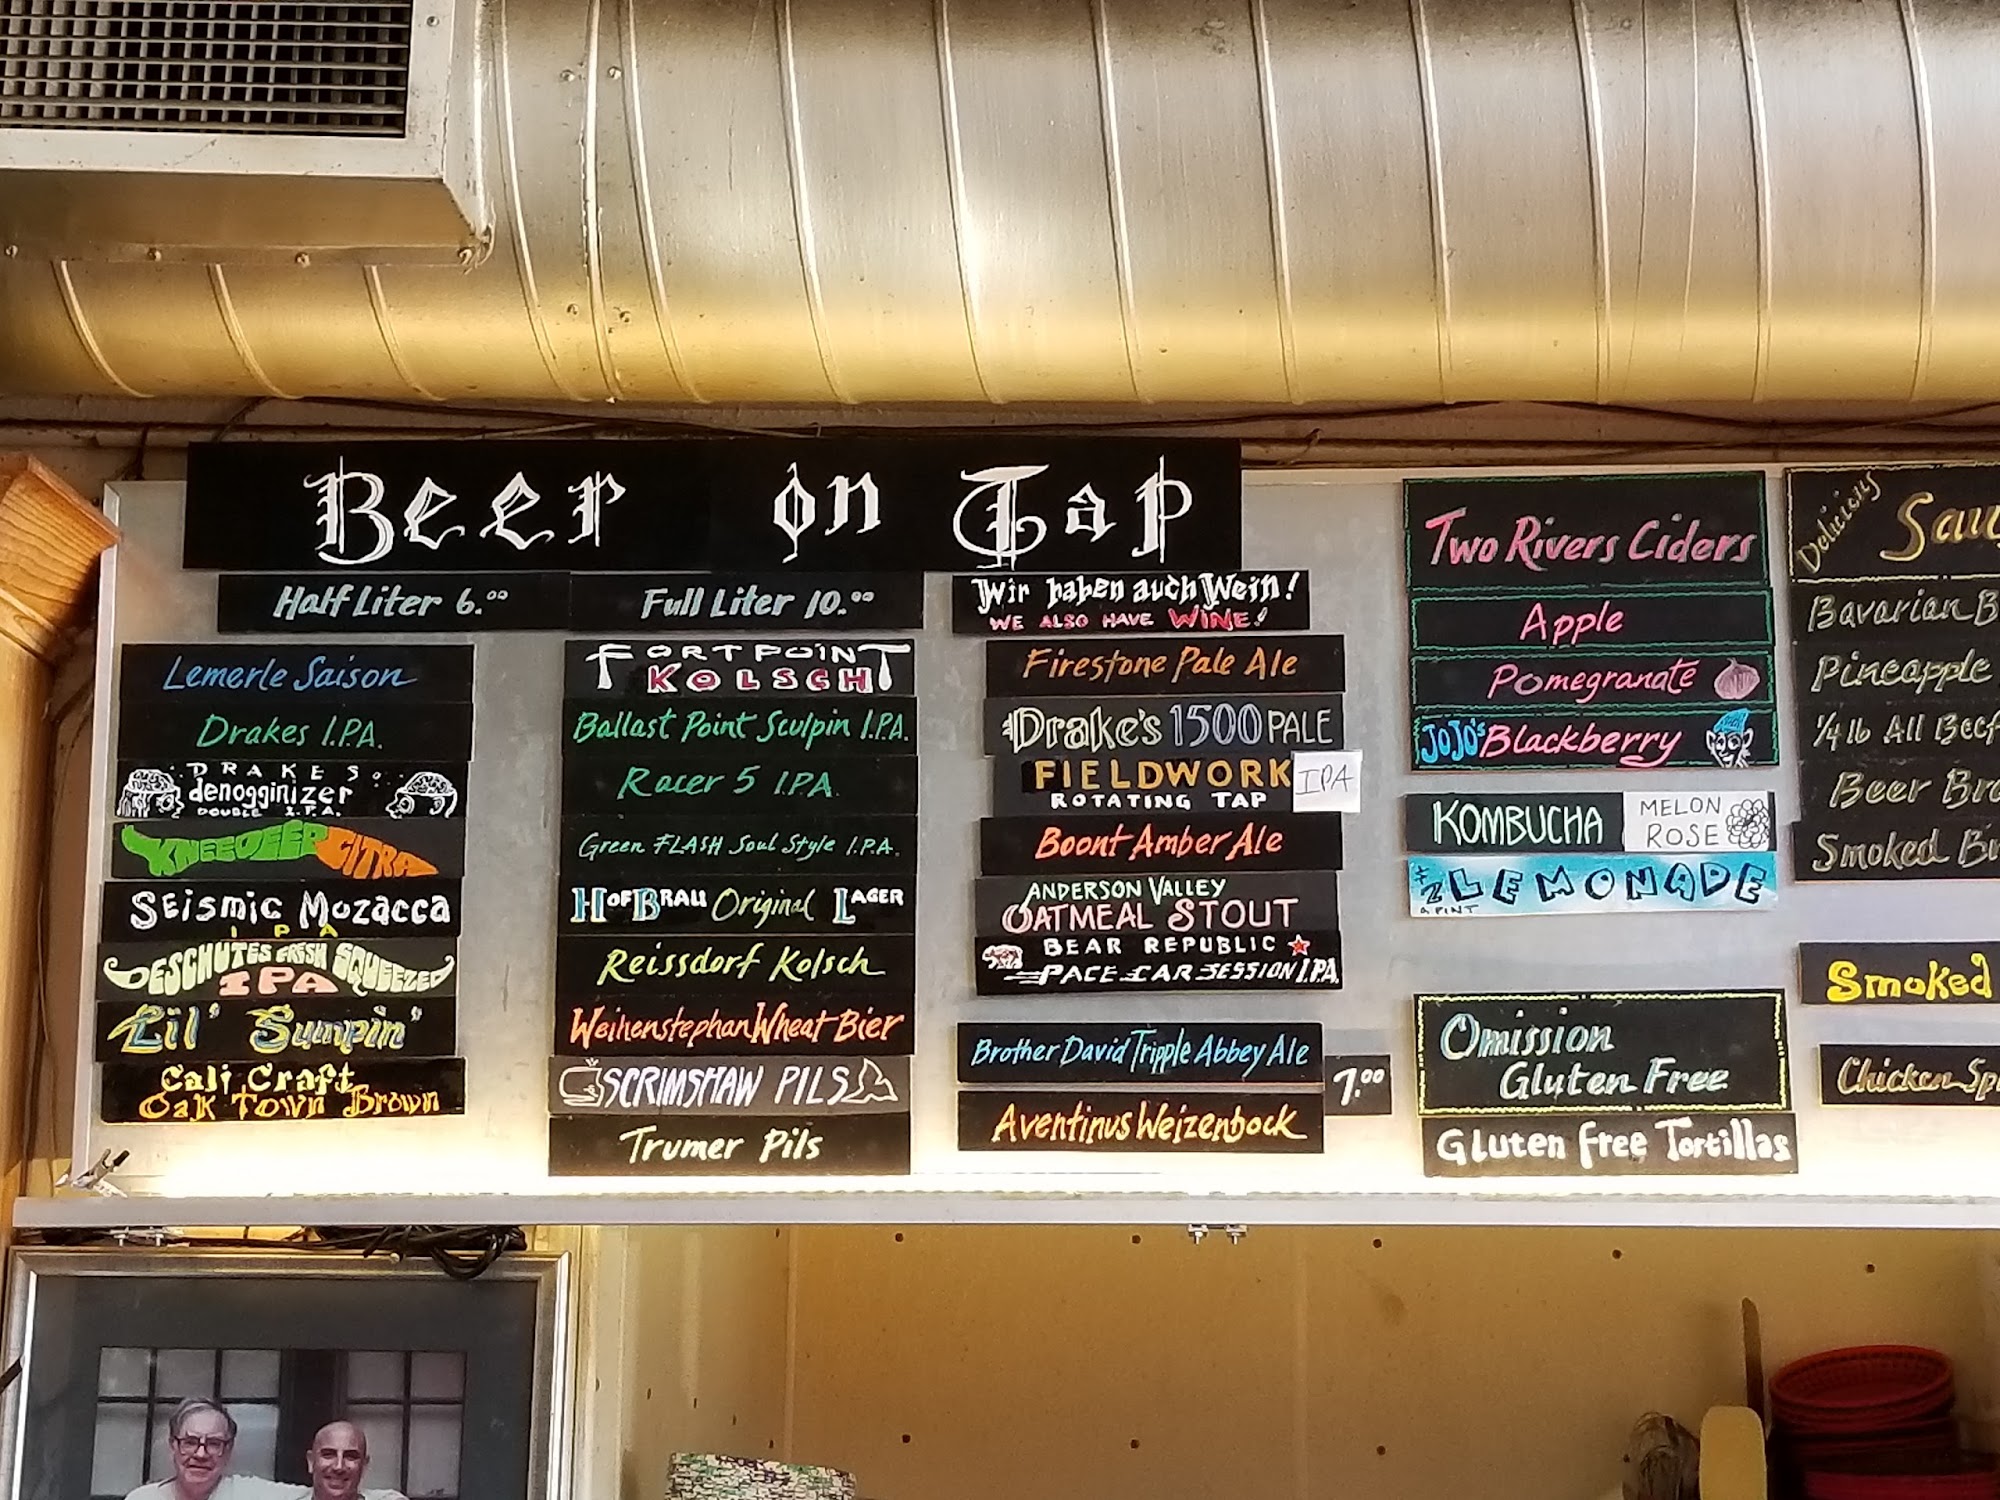 Beer on Tap
Half Liter 6.00
Full Liter 10.00
Lemerle Saison
Drakes I.P.A.
DRAKES
denogginizer
DOUBLE I.P.A.
KNEEDEEP CITRA
SEiSMiC MOZACCA
I P A
DESCHUTES FRESH SQUEEZED
IPA
Lil' Sumpin'
Cali Craft
Oak Town Brown
FORT POINT
KOLSCH
Ballast Point Sculpin I.P.A.
Racer 5 I.P.A.
Green FLASH Soul Style I.P.A.
HOFBRAU Original LAGER
Reissdorf Kolsch
Weihenstephan Wheat Bier
SCRIMSHAW PILS
Trumer Pils
Wir haben auch Wein!
WE ALSO HAVE WINE!
Firestone Pale Ale
Drake's 1500 PALE
FIELDWORK
ROTATING TAP
IPA
Boont Amber Ale
ANDERSON VALLEY
OATMEAL STOUT
BEAR REPUBLIC
PACE CAR SESSION I.P.A.
Brother David Tripple Abbey Ale
7.00
Aventinus Weizenbock
Two Rivers Ciders
Apple
Pomegranate
JOJO'S Blackberry
KOMBUCHA
MELON
ROSE
LEMONADE
A PINT
Omission
Gluten Free
Gluten free Tortillas
Delicious
Sau
Bavarian B
Pineapple
1/4 lb All Beef
Beer Bra
Smoked Br
Smoked
Chicken Sp